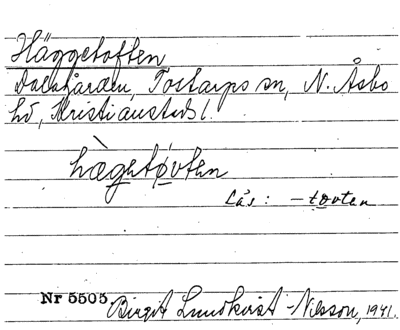 Häggetoften
Tostarps sn, N. Åsbo
hd, Kristianstads l.
hæ̀getǿvten
Läs: –tøvten
Nr 5505 Birgit Lundkvist-Nilsson, 1941.